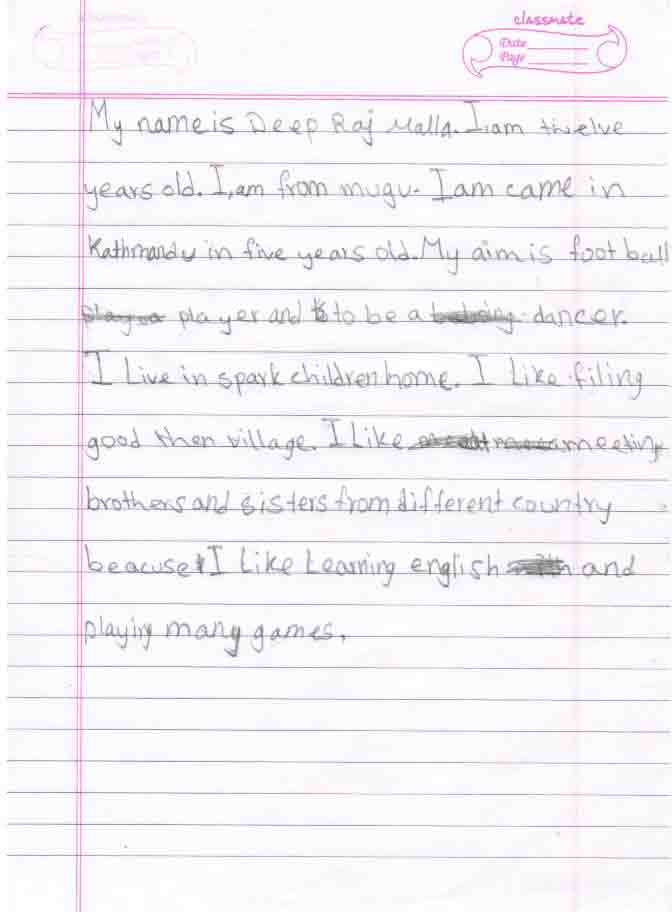 classmate
Date
Page
My name is Deep Raj Malla. I,am twelve
years old. I,am from mugu. I am came in
Kathmandu in five years old. My aim is foot ball
player and to be a dancer.
I Live in spark children home. I Like filing
good then village. I Like meeting
brothers and sisters from different country
beacuse I Like Learning english and
playing many games.